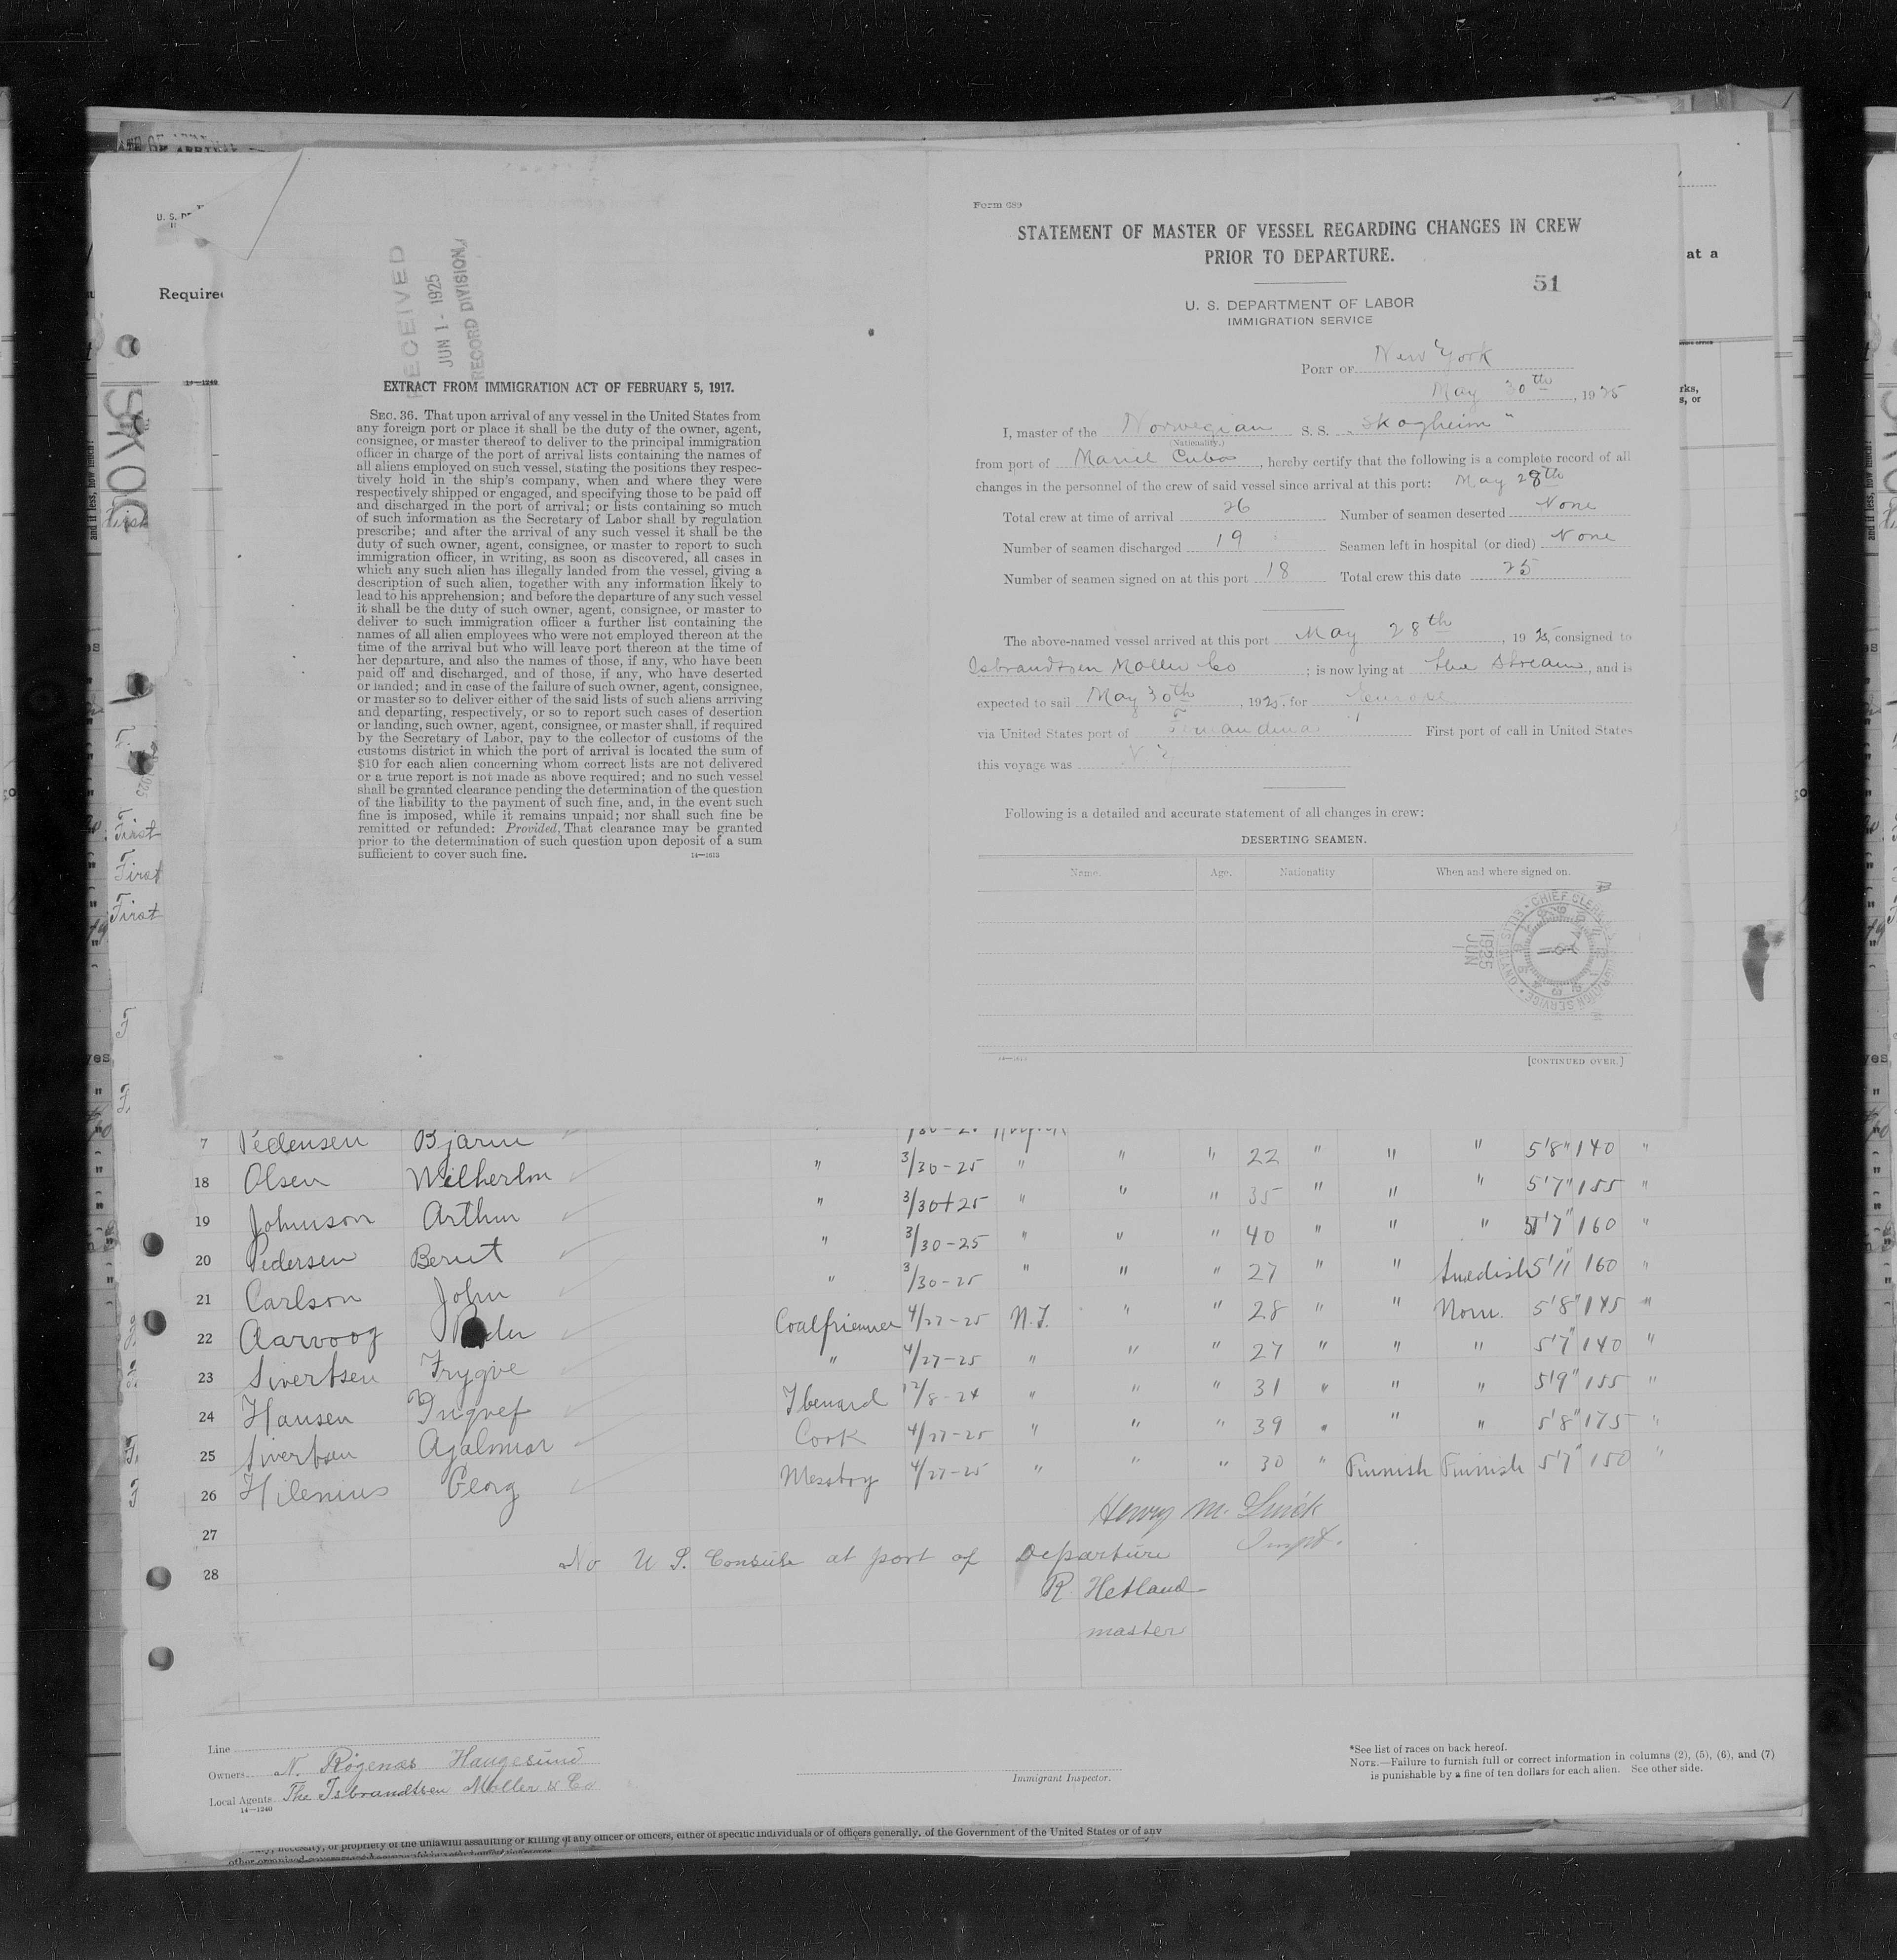 RECEIVED
JUN 1 - 1925
RECORD DIVISION
EXTRACT FROM IMMIGRATION ACT OF FEBRUARY 5, 1917.
SEC. 36. That upon arrival of any vessel in the United States from
any foreign port or place it shall be the duty of the owner, agent,
consignee, or master thereof to deliver to the principal immigration
officer in charge of the port of arrival lists containing the names of
all aliens employed on such vessel, stating the positions they respec-
tively hold in the ship's company, when and where they were
respectively shipped or engaged, and specifying those to be paid off
and discharged in the port of arrival; or lists containing so much
of such information as the Secretary of Labor shall by regulation
prescribe; and after the arrival of any such vessel it shall be the
duty of such owner, agent, consignee, or master to report to such
immigration officer, in writing, as soon as discovered, all cases in
which any such alien has illegally landed from the vessel, giving a
description of such alien, together with any information likely to
lead to his apprehension; and before the departure of any such vessel
it shall be the duty of such owner, agent, consignee, or master to
deliver to such immigration officer a further list containing the
names of all alien employees who were not employed thereon at the
time of the arrival but who will leave port thereon at the time of
her departure, and also the names of those, if any, who have been
paid off and discharged, and of those, if any, who have deserted
or landed; and in case of the failure of such owner, agent, consignee,
or master so to deliver either of the said lists of such aliens arriving
and departing, respectively, or so to report such cases of desertion
or landing, such owner, agent, consignee, or master shall, if required
by the Secretary of Labor, pay to the collector of customs of the
customs district in which the port of arrival is located the sum of
$10 for each alien concerning whom correct lists are not delivered
or a true report is not made as above required; and no such vessel
shall be granted clearance pending the determination of the question
of the liability to the payment of such fine, and, in the event such
fine is imposed, while it remains unpaid; nor shall such fine be
remitted or refunded: Provided, That clearance may be granted
prior to the determination of such question upon deposit of a sum
sufficient to cover such fine. 14—1613
Form 689
STATEMENT OF MASTER OF VESSEL REGARDING CHANGES IN CREW
PRIOR TO DEPARTURE.
51
U. S. DEPARTMENT OF LABOR
IMMIGRATION SERVICE
PORT OF New York
May 30th, 1925
I, master of the Norwegian S. S. "Skogheim"
(Nationality.)
from port of Mariel Cuba, hereby certify that the following is a complete record of all
changes in the personnel of the crew of said vessel since arrival at this port: May 28th
Total crew at time of arrival 26 Number of seamen deserted None
Number of seamen discharged 19 Seamen left in hospital (or died) None
Number of seamen signed on at this port 18 Total crew this date 25
The above-named vessel arrived at this port May 28th, 1925, consigned to
Isbrandtsen Moller Co; is now lying at the Stream, and is
expected to sail May 30th, 1925, for
via United States port of Fernandina First port of call in United States
this voyage was N Y
Following is a detailed and accurate statement of all changes in crew:
DESERTING SEAMEN.
Name. Age. Nationality. When and where signed on.
1925 JUN 1
14—1613 [CONTINUED OVER.]
7 Pedensen Bjarne " 22 " " " 5'8" 140 "
18 Olsen Wilhelm " 3/30-25 " " " 35 " " " 5'7" 155 "
19 Johnson Arthur " 3/30-25 " " " 40 " " " 5'7" 160 "
20 Pedersen Berut " 3/30-25 " " " 27 " " Swedish 5'11" 160 "
21 Carlson John " 3/30-25 " " " 28 " " Norw. 5'8" 145 "
22 Aarvoog Peder Coalfriemner 4/27-25 N.Y. " " 27 " " " 5'7" 140 "
23 Sivertsen Trygve " 4/27-25 " " " 31 " " " 5'9" 155 "
24 Hansen Ingvef 12/8-24 " " " 39 " " " 5'8" 175 "
25 Sivertsen Agalmar Cook 4/27-25 " " " 30 " Finnish Finnish 5'7" 150 "
26 Hilenius Georg Messboy 4/27-25 "
27
28
No U S. Consule at port of Departure
R. Hetland
master
Line
Owners N. Røgenæs Haugesund
Local Agents The Isbrandtsen Moller & Co
14—1240
Immigrant Inspector.
*See list of races on back hereof.
NOTE.—Failure to furnish full or correct information in columns (2), (5), (6), and (7)
is punishable by a fine of ten dollars for each alien. See other side.